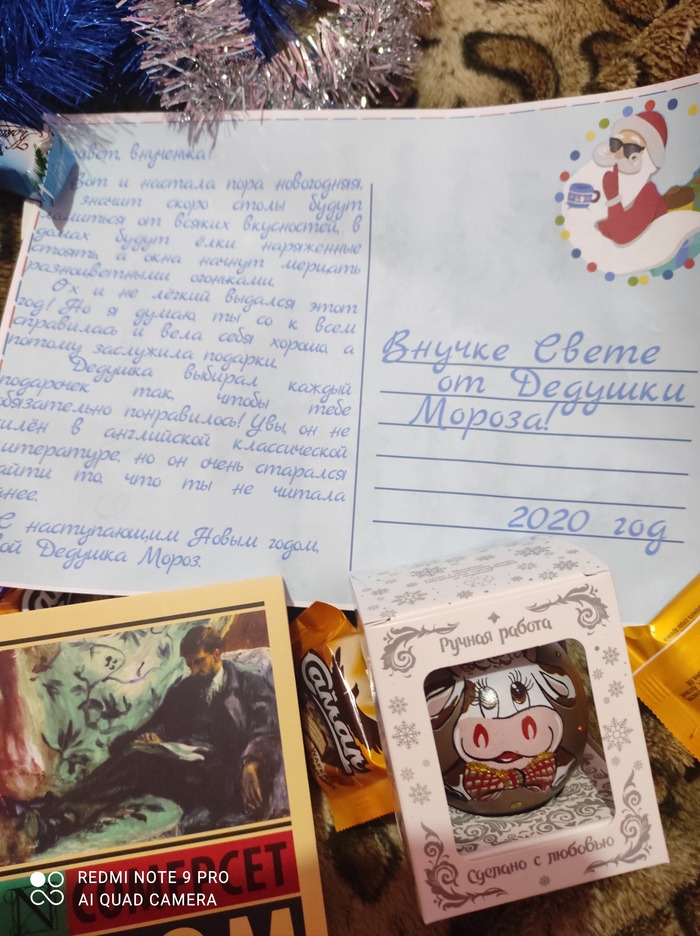 внученька!
Вот и настала пора новогодняя,
значит скоро столы будут
ломиться от всяких вкусностей, в
домах будут ёлки наряженные
стоять, а окна начнут мерцать
разноцветными огоньками.
Ох и не лёгкий выдался этот
год! Но я думаю, ты со к всем
справилась и вела себя хорошо, а
потому заслужила подарки.
Дедушка выбирал каждый
подарочек так, чтобы тебе
обязательно понравилось! Увы, он не
силён в английской классической
литературе, но он очень старался
найти то, что ты не читала
ранее.
С наступающим Новым годом,
твой Дедушка Мороз.
Внучке Свете
от Дедушки
Мороза!
2020 год
Ручная работа
Сделано с любовью
СОМЕРСЕТ
REDMI NOTE 9 PRO
AI QUAD CAMERA